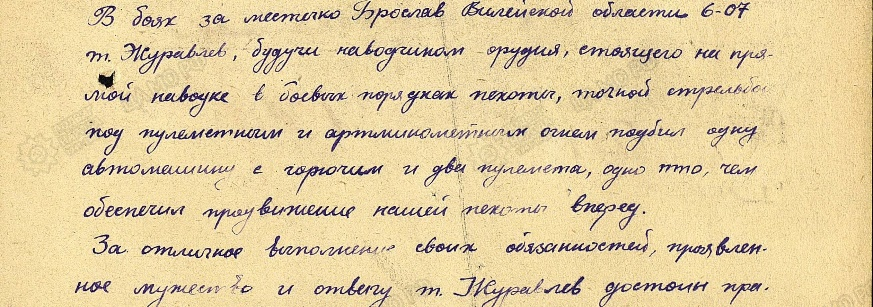 В боях за местечко Брослав Вилейской области 6-07
т. Журавлев, будучи наводчиком орудия, стоящего на пря-
мой наводке в боевых порядках пехоты, точной стрельбой
под пулеметным и артминометным огнем подбил одну
автомашину с горючим и два пулемета, одно пто, чем
обеспечил продвижение нашей пехоты вперед.
За отличное выполнение своих обязанностей, проявлен-
ное мужество и отвагу т. Журавлев достоин пра-